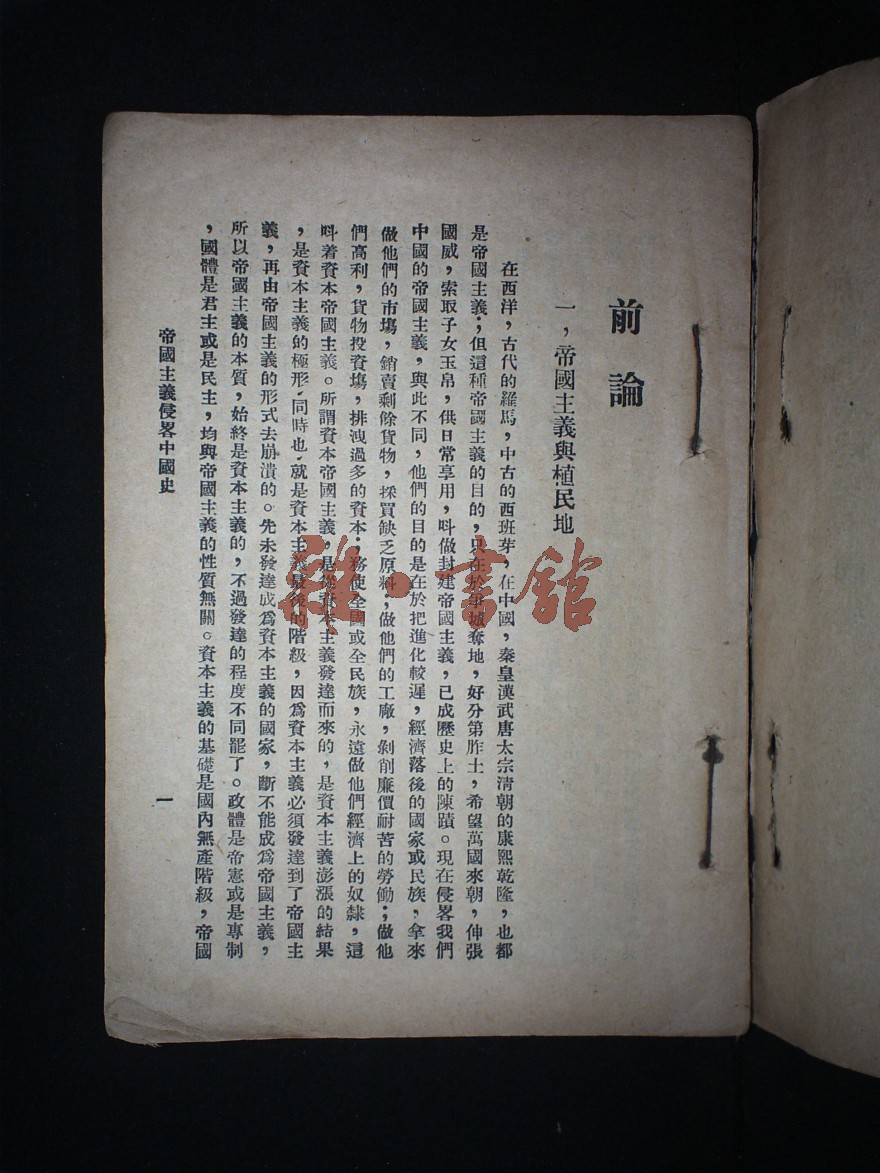 前論
一，帝國主義與植民地
在西洋，古代的羅馬，中古的西班芽，在中國，秦皇漢武唐太宗清朝的康熙乾隆，也都
是帝國主義；但這種帝國主義的目的，只在於爭城奪地，好分第胙土，希望萬國來朝，伸張
國威，索取子女玉帛，供日常享用，呌做封建帝國主義，已成歷史上的陳蹟。現在侵畧我們
中國的帝國主義，與此不同，他們的目的是在於把進化較遲，經濟落後的國家或民族，拿來
做他們的市塲，銷賣剩餘貨物，採買缺乏原料；做他們的工廠，剝削廉價耐苦的勞働；做他
們高利，貨物投資塲，排洩過多的資本；務使全國或全民族，永遠做他們經濟上的奴隸，這
呌着資本帝國主義。所謂資本帝國主義，是從資本主義發達而來的，是資本主義澎漲的結果
，是資本主義的極形，同時也，就是資本主義最後的階級，因爲資本主義必須發達到了帝國主
義，再由帝國主義的形式去崩潰的。先未發達成爲資本主義的國家，斷不能成爲帝國主義，
所以帝國主義的本質，始終是資本主義的，不過發達的程度不同罷了。政體是帝憲或是專制
，國體是君主或是民主，均與帝國主義的性質無關。資本主義的基礎是國內無產階級，帝國
帝國主義侵畧中國史
一
雜·書館